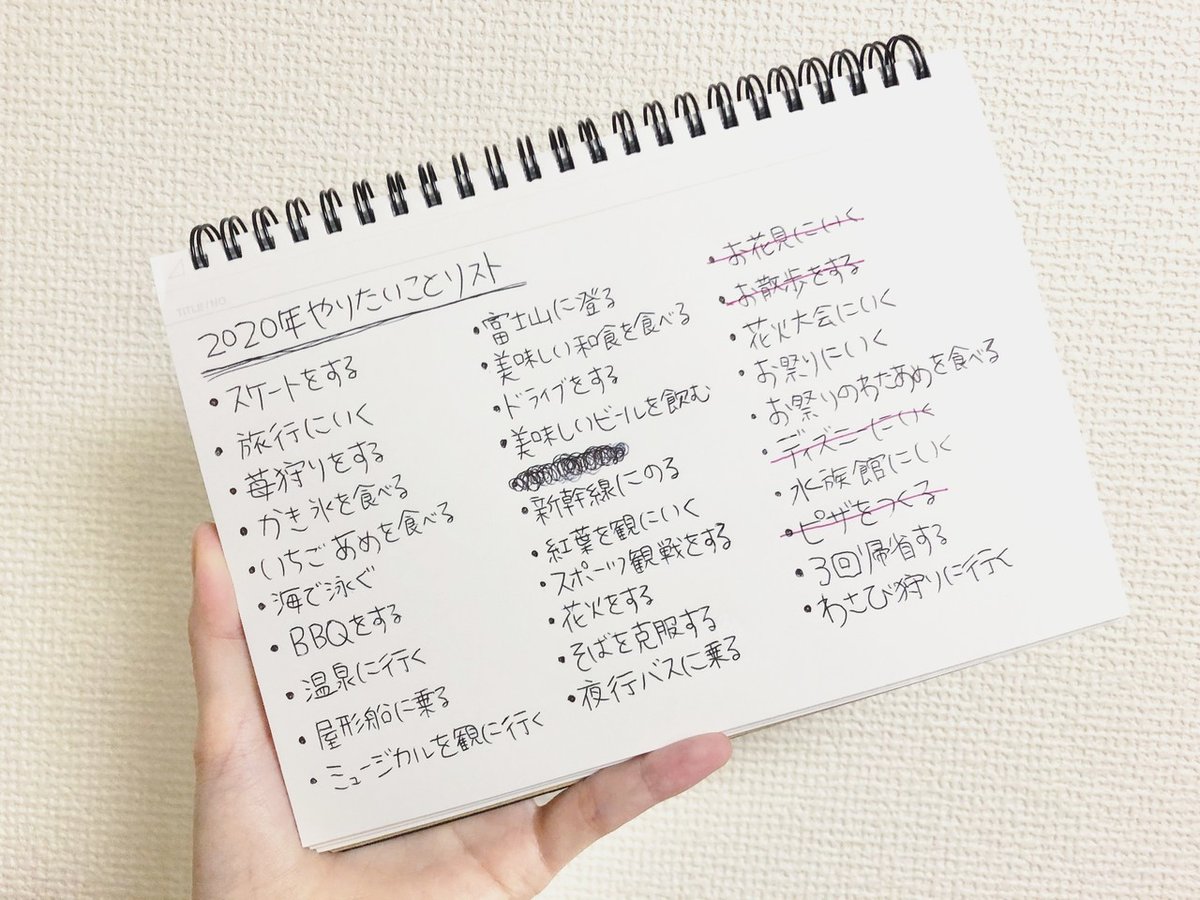 TITLE/NO
2020年やりたいことリスト
・スケートをする
・旅行にいく
・苺狩りをする
・かき氷を食べる
・いちごあめを食べる
・海で泳ぐ
・BBQをする
・温泉に行く
・屋形船に乗る
・ミュージカルを観に行く
・富士山に登る
・美味しい和食を食べる
・ドライブをする
・美味しいビールを飲む
・新幹線にのる
・紅葉を観にいく
・スポーツ観戦をする
・花火をする
・そばを克服する
・夜行バスに乗る
・お花見にいく
・お散歩をする
・花火大会にいく
・お祭りにいく
・お祭りのわたあめを食べる
・ディズニーにいく
・水族館にいく
・ピザをつくる
・3回帰省する
・わさび狩りに行く